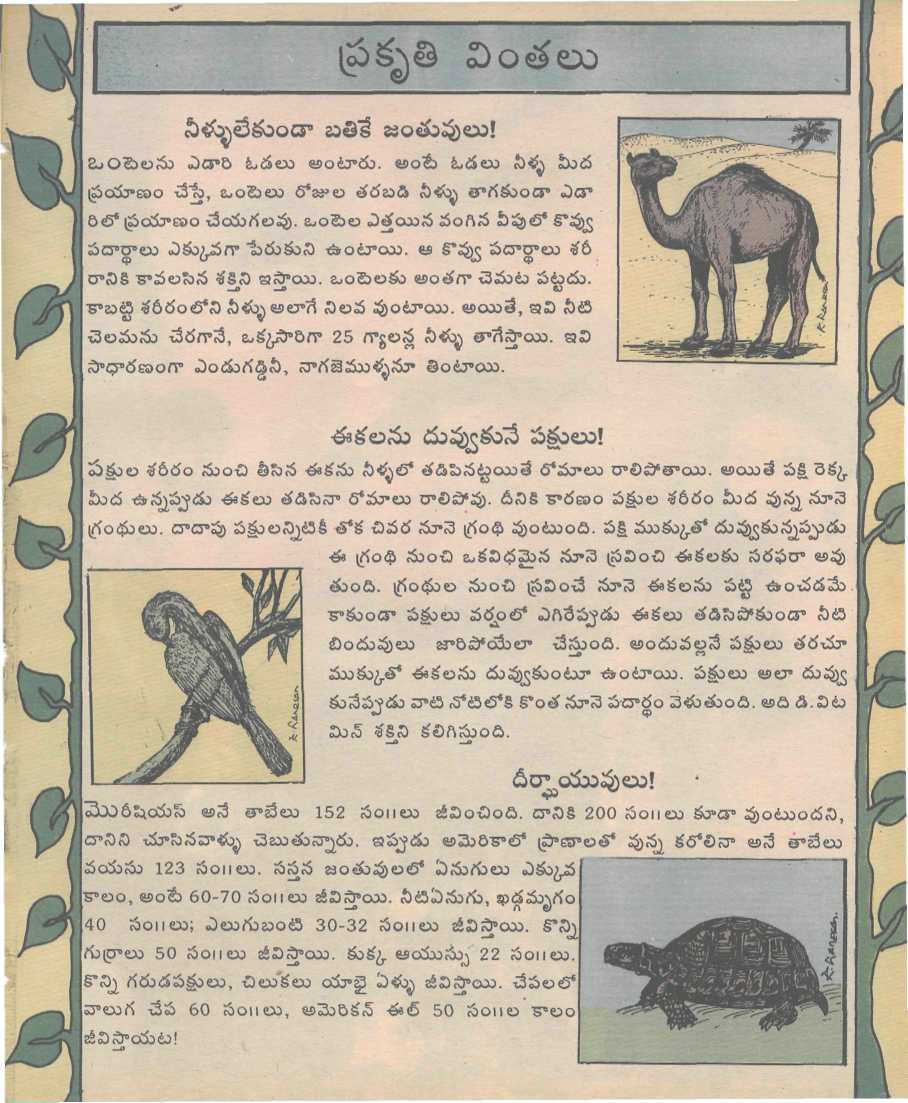 ప్రకృతి వింతలు
నీళ్ళులేకుండా బతికే జంతువులు!
ఒంటెలను ఎడారి ఓడలు అంటారు. అంటే ఓడలు నీళ్ళ మీద
ప్రయాణం చేస్తే, ఒంటెలు రోజుల తరబడి నీళ్ళు తాగకుండా ఎడా
రిలో ప్రయాణం చేయగలవు. ఒంటెల ఎత్తయిన వంగిన వీపులో కొవ్వు
పదార్థాలు ఎక్కువగా పేరుకుని ఉంటాయి. ఆ కొవ్వు పదార్థాలు శరీ
రానికి కావలసిన శక్తిని ఇస్తాయి. ఒంటెలకు అంతగా చెమట పట్టదు.
కాబట్టి శరీరంలోని నీళ్ళు అలాగే నిలవ వుంటాయి. అయితే, ఇవి నీటి
చెలమను చేరగానే, ఒక్కసారిగా 25 గ్యాలన్ల నీళ్ళు తాగేస్తాయి. ఇవి
సాధారణంగా ఎండుగడ్డినీ, నాగజెముళ్ళనూ తింటాయి.
ఈకలను దువ్వుకునే పక్షులు!
పక్షుల శరీరం నుంచి తీసిన ఈకను నీళ్ళలో తడిపినట్టయితే రోమాలు రాలిపోతాయి. అయితే పక్షి రెక్క
మీద ఉన్నప్పుడు ఈకలు తడిసినా రోమాలు రాలిపోవు. దీనికి కారణం పక్షుల శరీరం మీద వున్న నూనె
గ్రంథులు. దాదాపు పక్షులన్నిటికీ తోక చివర నూనె గ్రంథి వుంటుంది. పక్షి ముక్కుతో దువ్వుకున్నప్పుడు
ఈ గ్రంథి నుంచి ఒకవిధమైన నూనె స్రవించి ఈకలకు సరఫరా అవు
తుంది. గ్రంథుల నుంచి స్రవించే నూనె ఈకలను పట్టి ఉంచడమే
కాకుండా పక్షులు వర్షంలో ఎగిరేప్పుడు ఈకలు తడిసిపోకుండా నీటి
బిందువులు జారిపోయేలా చేస్తుంది. అందువల్లనే పక్షులు తరచూ
ముక్కుతో ఈకలను దువ్వుకుంటూ ఉంటాయి. పక్షులు అలా దువ్వు
కునేప్పుడు వాటి నోటిలోకి కొంత నూనె పదార్థం వెళుతుంది. అది డి.విట
మిన్ శక్తిని కలిగిస్తుంది.
దీర్ఘాయువులు!
మొరీషియస్ అనే తాబేలు 152 సం॥లు జీవించింది. దానికి 200 సం॥లు కూడా వుంటుందని,
దానిని చూసినవాళ్ళు చెబుతున్నారు. ఇప్పుడు అమెరికాలో ప్రాణాలతో వున్న కరోలినా అనే తాబేలు
వయసు 123 సం॥లు. సస్తన జంతువులలో ఏనుగులు ఎక్కువ
కాలం, అంటే 60-70 సం॥లు జీవిస్తాయి. నీటిఏనుగు, ఖడ్గమృగం
40 సం॥లు; ఎలుగుబంటి 30-32 సం॥లు జీవిస్తాయి. కొన్ని
గుర్రాలు 50 సం॥లు జీవిస్తాయి. కుక్క ఆయుస్సు 22 సం॥లు.
కొన్ని గరుడపక్షులు, చిలుకలు యాభై ఏళ్ళు జీవిస్తాయి. చేపలలో
వాలుగ చేప 60 సం॥లు, అమెరికన్ ఈల్ 50 సం॥ల కాలం
జీవిస్తాయట!